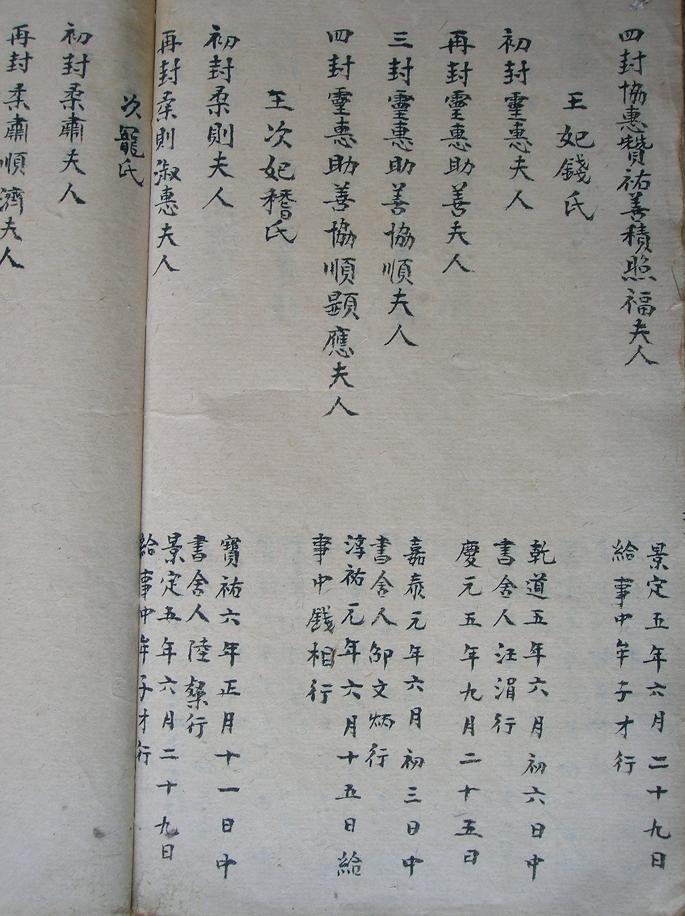 四封協惠贊祐善積照福夫人
景定五年六月二十九日
給事中牟子才行
王妃錢氏
初封靈惠夫人
乾道五年六月初六日中
書舍人汪涓行
再封靈惠助善夫人
慶元五年九月二十五日
三封靈惠助善協順夫人
嘉泰元年六月初三日中
書舍人邵文炳行
四封靈惠助善協順顯應夫人
淳祐元年六月十五日給
事中錢相行
王次妃嵇氏
初封柔則夫人
寶祐六年正月十一日中
書舍人陸行
再封柔則淑惠夫人
景定五年六月二十九日
給事中牟子才行
次寵氏
初封柔肅夫人
再封柔肅順濟夫人